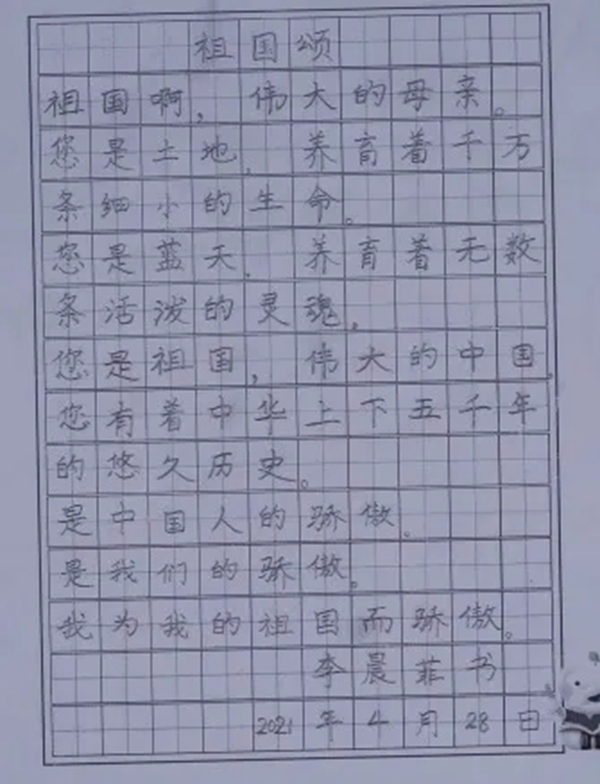 祖国颂
祖国啊，伟大的母亲。
您是土地，养育着千万
条细小的生命。
您是蓝天，养育着无数
条活泼的灵魂，
您是祖国，伟大的中国，
您有着中华上下五千年
的悠久历史。
是中国人的骄傲。
是我们的骄傲。
我为我的祖国而骄傲。
李晨菲书
2021年4月28日